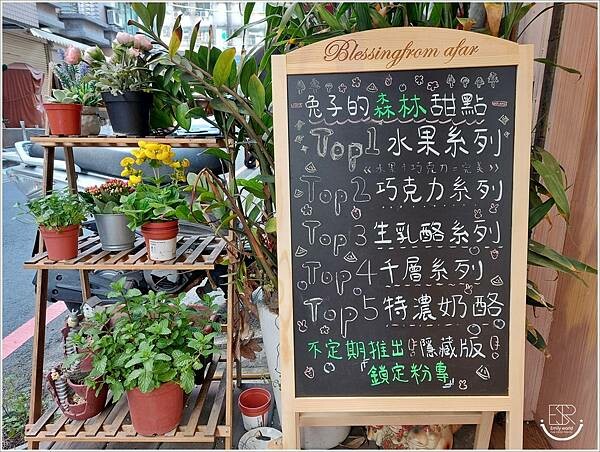 Blessing from afar
兔子的森林甜點
Top1 水果系列
《水果+巧克力=完美》
Top2 巧克力系列
Top3 生乳酪系列
Top4 千層系列
Top5 特濃奶酪
不定期推出"隱藏版"
鎖定粉專
Emily world